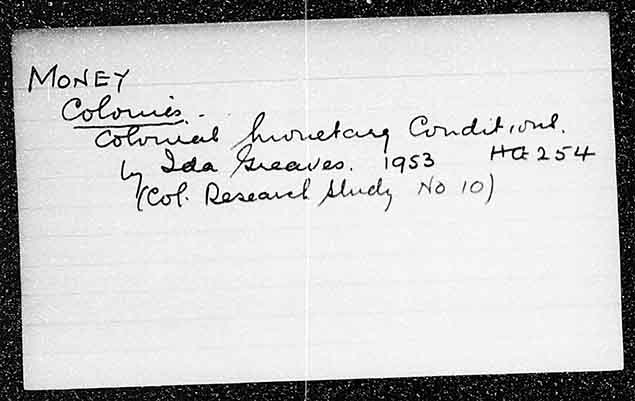 MONEY
Colonies.
Colonial Monetary Conditions.
by Ida Greaves. 1953 HG 254
(Col. Research Study No 10)